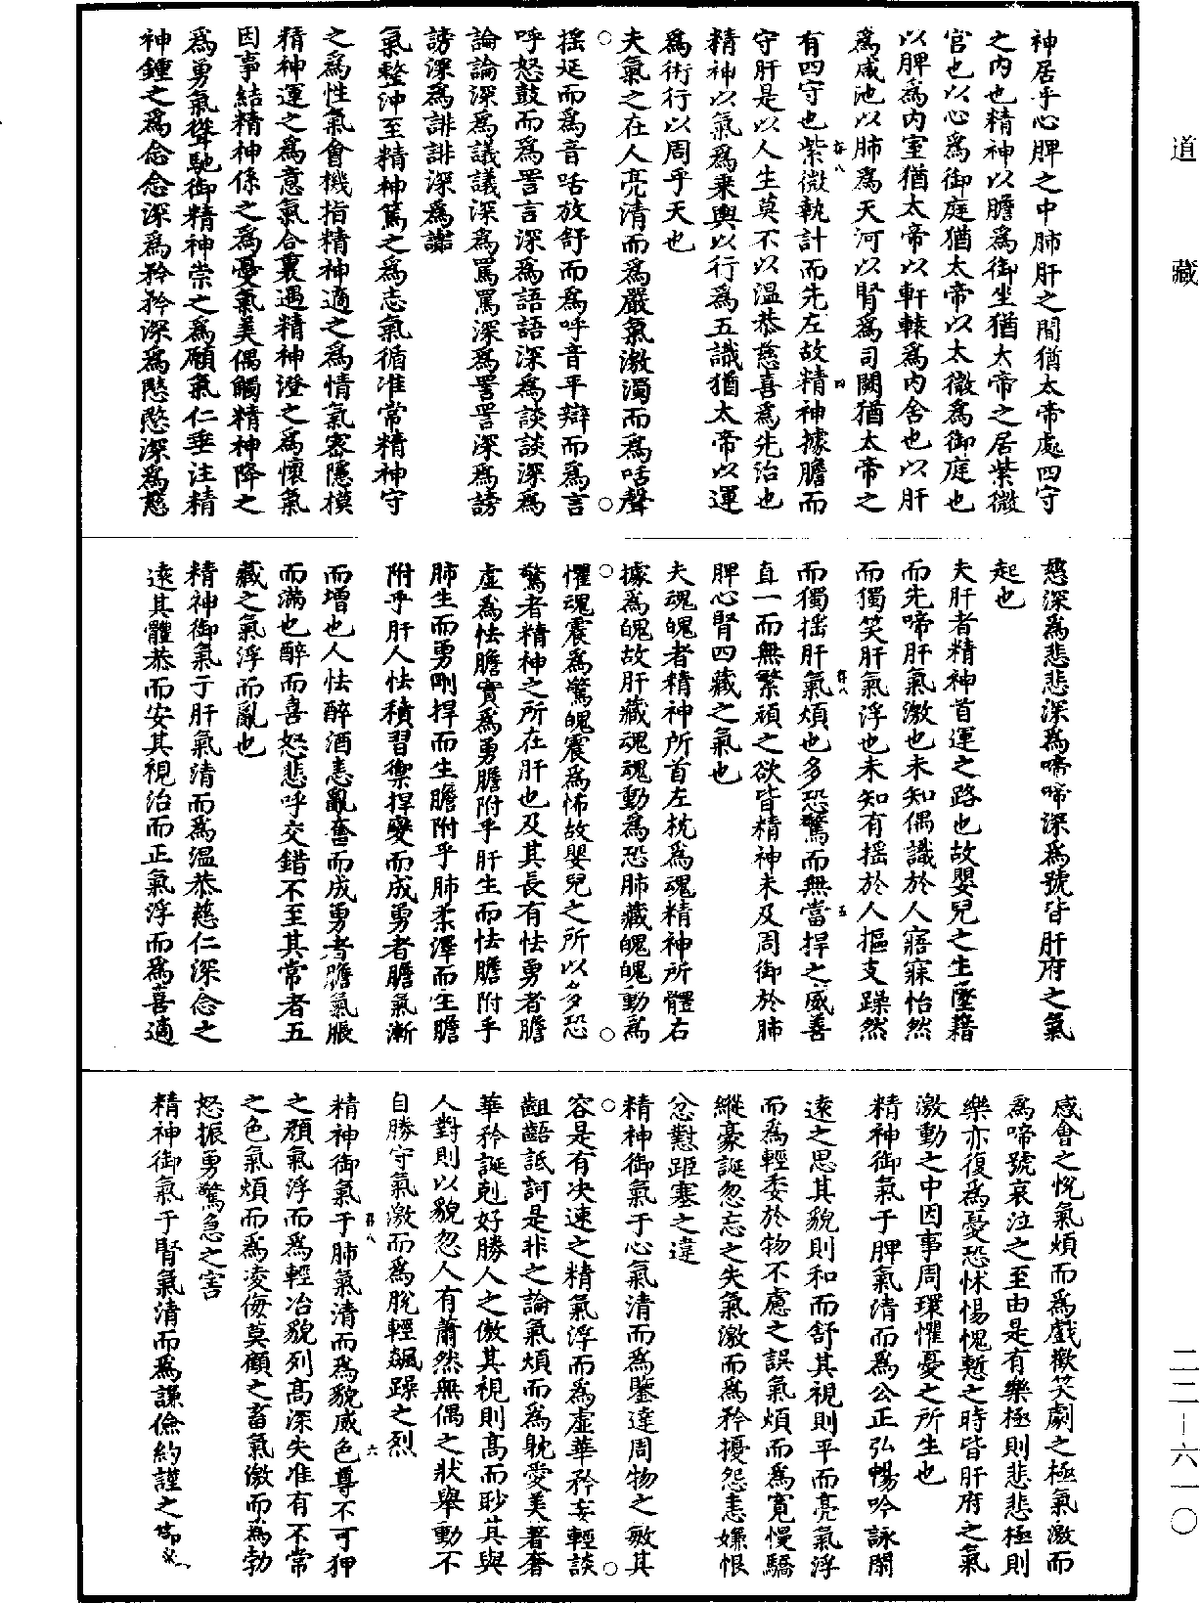 道藏
二二－六一〇
神居乎心脾之中肺肝之間猶太帝處四守
之內也精神以膽為御坐猶太帝之居紫微
宮也以心為御庭猶太帝以太微為御庭也
以脾為內室猶太帝以軒轅為內舍也以肝
為咸池以肺為天河以腎為司闕猶太帝之
有四守也紫微執計而先左故精神據膽而
守肝是以人生莫不以溫恭慈喜為先治也
精神以氣為乘輿以行為五識猶太帝以運
為術行以周乎天也
夫氣之在人亮清而為嚴氣激濁而為咶聲
搖延而為音咶放舒而為呼音平辯而為言
呼怒鼓而為詈言深為語語深為談談深為
論論深為議議深為罵罵深為詈詈深為謗
謗深為誹誹深為謔
氣整沖至精神篤之為志氣循准常精神守
之為性氣會機指精神適之為情氣密隱模
精神運之為意氣合裏遇精神澄之為懷氣
因事結精神係之為憂氣美偶觸精神降之
為勇氣聳馳御精神崇之為願氣仁垂注精
神鍾之為念念深為矜矜深為愍愍深為慈
慈深為悲悲深為啼啼深為號皆肝府之氣
起也
夫肝者精神首運之路也故嬰兒之生墜藉
而先啼肝氣激也未知偶識於人寤寐怡然
而獨笑肝氣浮也未知有搖於人摳支躁然
而獨搖肝氣煩也多恐驚而無當捍之威善
直一而無繁碩之欲皆精神未及周御於肺
脾心腎四藏之氣也
夫魂魄者精神所首左枕為魂精神所體右
據為魄故肝藏魂魂動為恐肺藏魄魄動為
懼魂震為驚魄震為怖故嬰兒之所以多恐
驚者精神之所在肝也及其長有怯勇者膽
虛為怯膽實為勇膽附乎肝生而怯膽附乎
肺生而勇剛捍而生膽附乎肺柔澤而生膽
附乎肝人怯積習禦捍變而成勇者膽氣漸
而增也人怯醉酒恚亂奮而成勇者膽氣脹
而滿也醉而喜怒悲呼交錯不至其常者五
藏之氣浮而亂也
精神御氣于肝氣清而為溫恭慈仁深念之
遠其體恭而安其視治而正氣浮而為喜適
感會之悅氣煩而為戲歡笑劇之極氣激而
為啼號哀泣之至由是有樂極則悲悲極則
樂亦復為憂恐怵惕愧慙之時皆肝府之氣
激動之中因事周環懼憂之所生也
精神御氣于脾氣清而為公正弘暢吟詠閑
遠之思其貌則和而舒其視則平而亮氣浮
而為輕委於物不慮之誤氣煩而為寬慢驕
縱豪誕忽忘之失氣激而為矜擾怨恚嫌恨
忿懟距塞之違
精神御氣于心氣清而為鑒達周物之敏其
容是有決速之精氣浮而為虛華矜妄輕談
齟齬詆訶是非之論氣煩而為躭愛美著奢
華矜誕剋好勝人之傲其視則高而眇其與
人對則以貌忽人有蕭然無偶之狀舉動不
自勝守氣激而為脫輕飆躁之烈
精神御氣于肺氣清而為貌威色尊不可狎
之顏氣浮而為輕冶貌列高深失准有不常
之色氣煩而為凌侮莫顧之畜氣激而為勃
怒振勇驚急之害
精神御氣于腎氣清而為謙儉約謹之